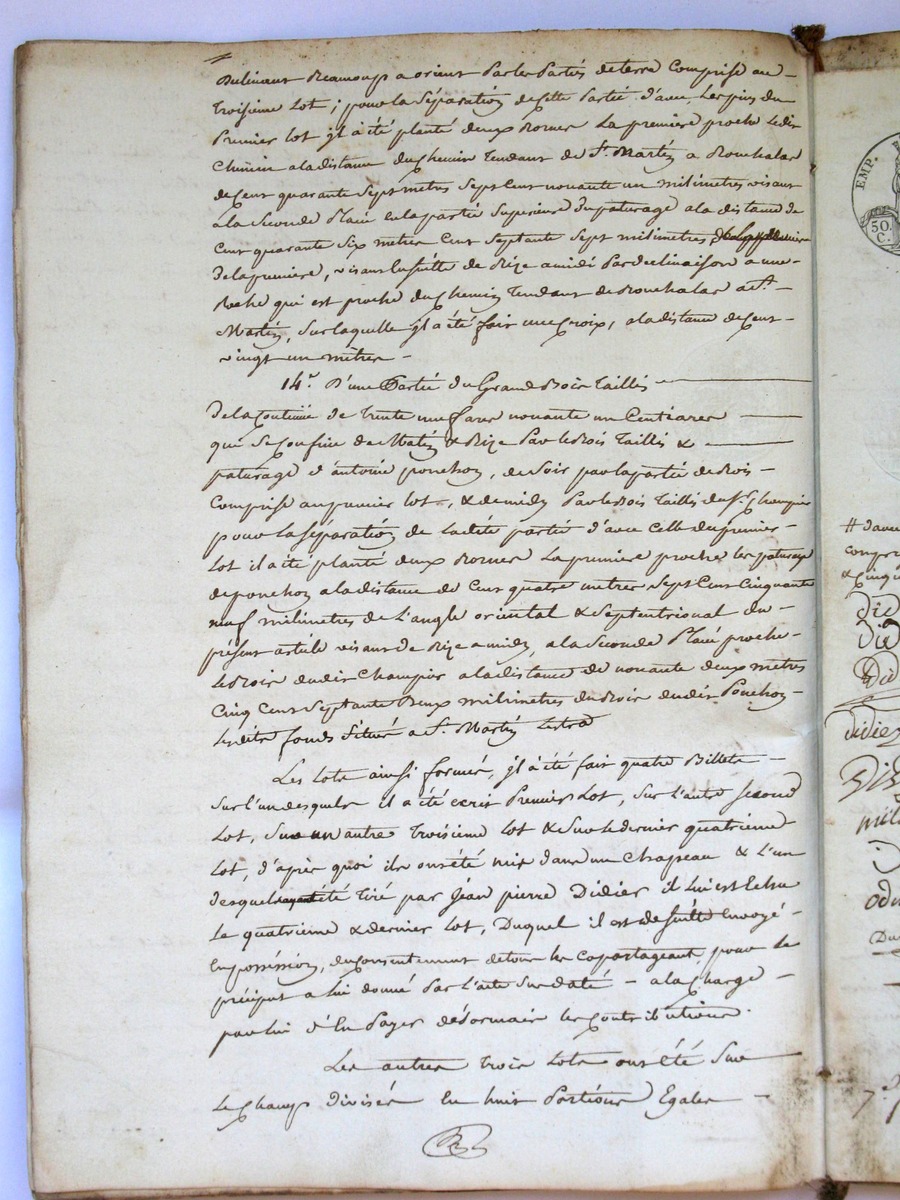 Declinant Beaucoup a orient Par les Parties de terre Comprise au
Troisième Lot ; pour la Séparation de Cette Partie d'avec Les pins du
Premier Lot jl a été planté deux Bornes La première proche Le dit
Chemin a la distance du Chemin Tendant de St. Martin a Rouchalar
de Cent quarante Sept mètres Sept Cent nonante un milimetres visant
a la Seconde Placé en la partie Supérieure du paturage a la distance de
Cent quarante Six mètres Cent Septante Sept milimetres
de la première, visant ensuitte de Bize a midi Par declinaison a une
Roche qui est proche du Chemin Tendant de Rouchalar a St.
Martin, Sur laquelle jl a été fait une Croix, a la distance de Cent
vingt un mètres
14°. D'une Partie du Grand Bois Taillis
de la Contenüe de Trente neuf ares nonante un Centiares
qui Se Confine de Matin & Bize Par le Bois Taillis &
paturage d'antoine ponchon, de Soir par la partie de Bois
Comprise au premier Lot, & de midy Par le Bois Taillis du Sr. Champier
pour la Séparation de La dite partie d'avec Celle du premier
Lot il a été planté deux Bornes La première proche les paturage
de ponchon a la distance de Cent quatre metres Sept Cent Cinquante
neuf milimetres de L'angle oriental & Septentrional du
présent article visant de Bize a midy, a la Seconde Placé proche
Le Bois du dit Champier a la distance de nonante deux mètres
Cinq Cent Septante Deux milimetres du Bois du dit Ponchon
Lesdits fonds Situés a St. Martin Lestra
Les Lots ainsi formés, jl a été fait quatre Billets
Sur L'un desquels il a été écrit Premier Lot, Sur L'autre Second
Lot, Sur un autre Troisième Lot & Sur le dernier quatrième
Lot, d'après quoi ils ont été mix dans un Chapeau & L'un
desquels ayant été Tiré par Jean pierre Didier il Lui est Echu
Le quatrième & dernier Lot, Duquel il est de Suitte Envoyé
En possession, du Consentement de tous les Copartageant, pour le
précipus a lui donné Par l'acte Sus daté – a la Charge
par lui d'En Payer désormais les Contributions.
Les autres Trois Lots ont été Sur
Le Champ divisés En huit Portions Egales
EMP.
50.
C.
# d'avec
compri
& cinqu
Die
Did
Did
didier
Did
mill
odu
Du
7°.